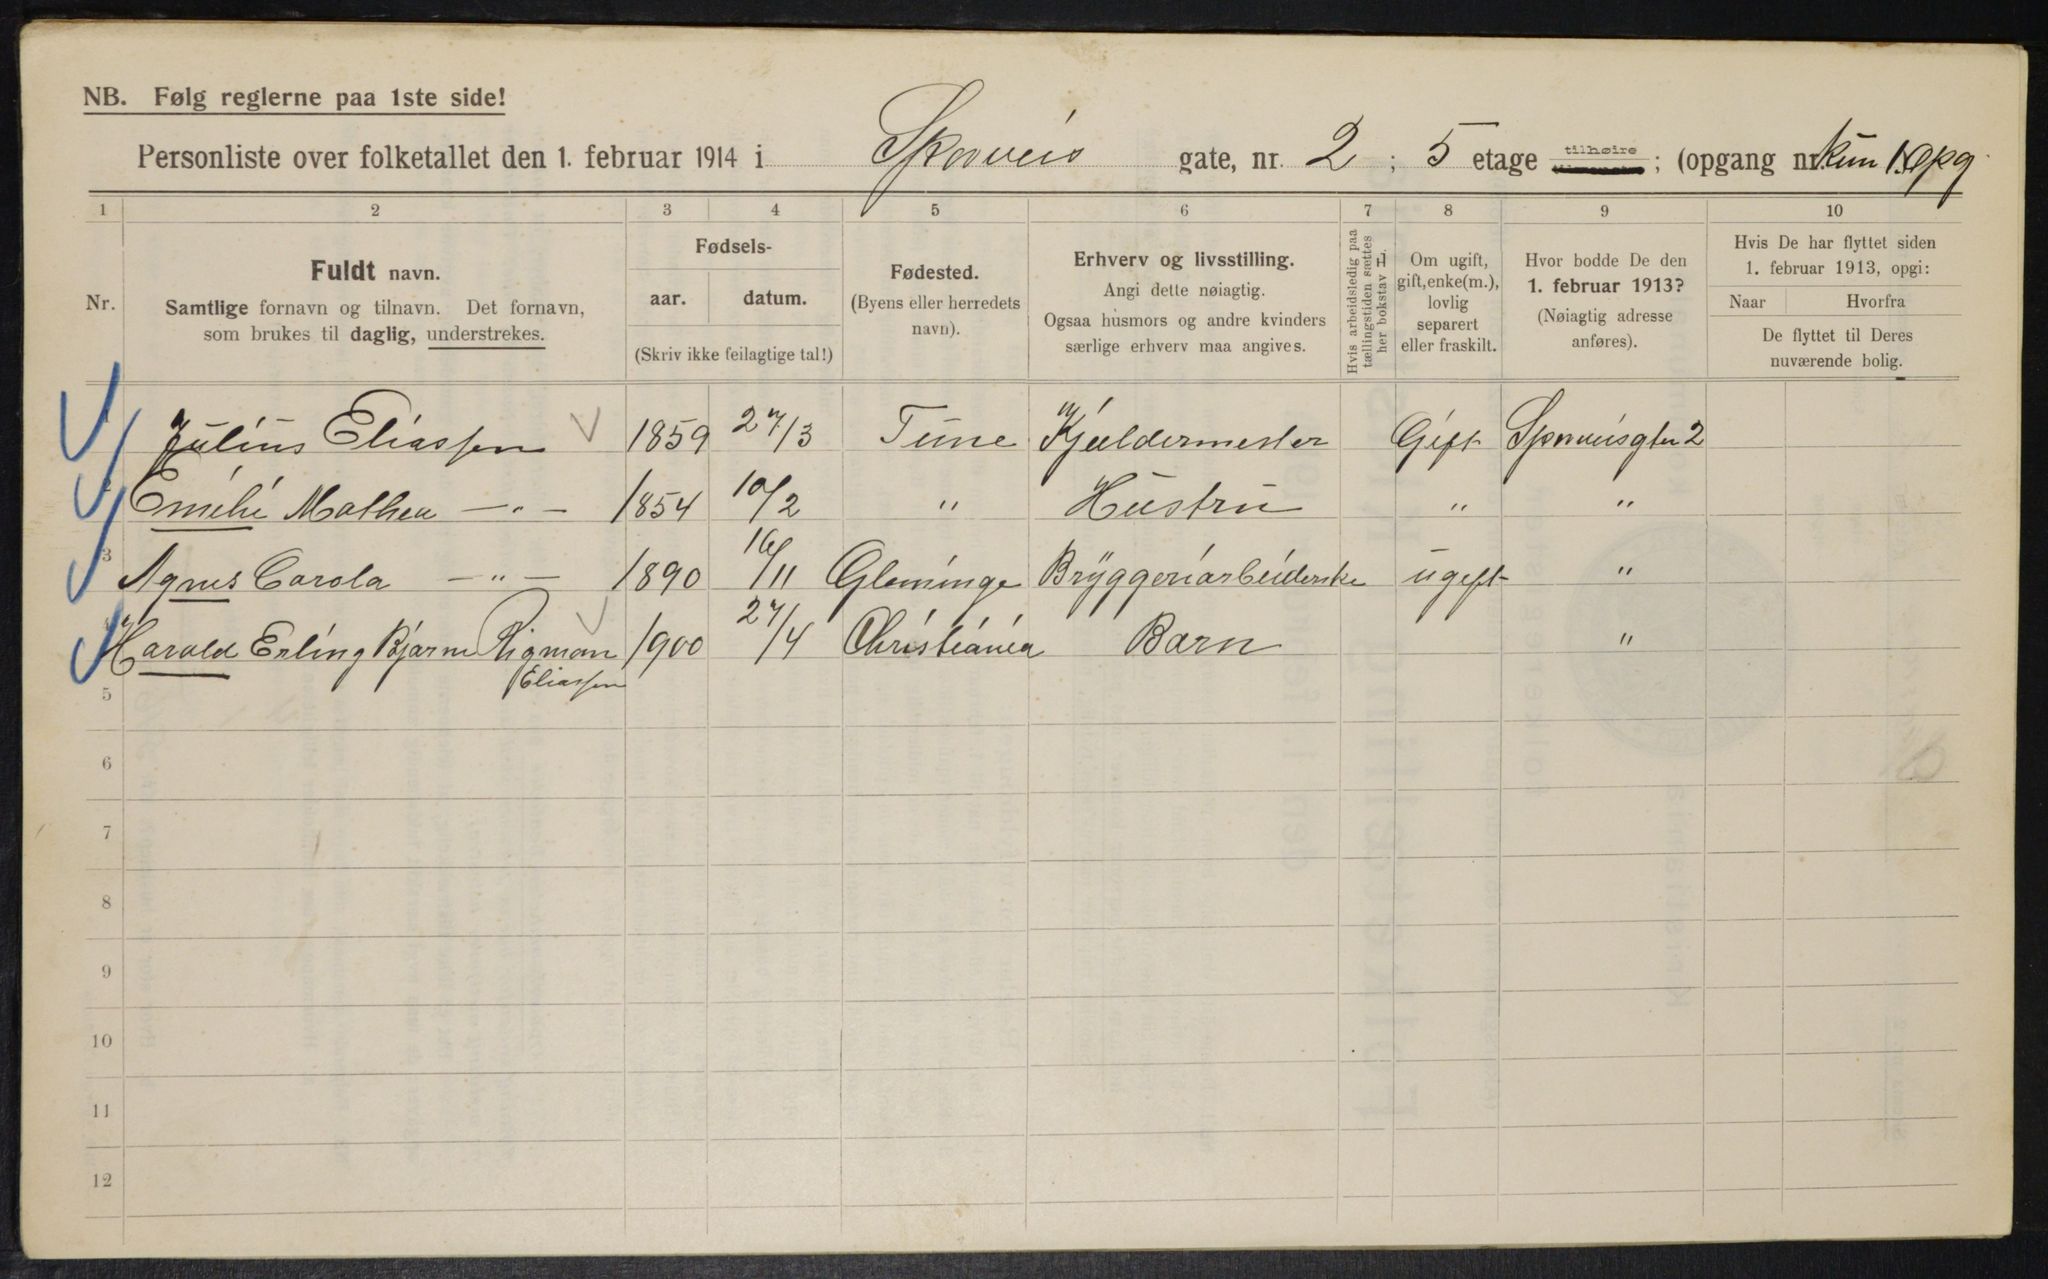 NB. Følg reglerne paa 1ste side!
Personliste over folketallet den 1. februar 1914 i Sporveis gate, nr. 2 ; 5 etage tilhøire ; (opgang nr. kun 1. opg.
1 2 3 4 5 6 7 8 9 10
Nr.
Fuldt navn.
Samtlige fornavn og tilnavn. Det fornavn,
som brukes til daglig, understrekes.
Fødsels-
aar. datum.
(Skriv ikke feilagtige tal!)
Fødested.
(Byens eller herredets
navn).
Erhverv og livsstilling.
Angi dette nøiagtig.
Ogsaa husmors og andre kvinders
særlige erhverv maa angives.
Hvis arbeidsledig paa
tællingstiden sættes
her bokstav L.
Om ugift,
gift, enke(m.),
lovlig
separert
eller fraskilt.
Hvor bodde De den
1. februar 1913?
(Nøiagtig adresse
anføres).
Hvis De har flyttet siden
1. februar 1913, opgi:
Naar Hvorfra
De flyttet til Deres
nuværende bolig.
1 Julius Eliassen 1859 27/3 Tune Kjeldermester Gift Sporveisgten 2
2 Emilie Mathea —"— 1854 10/2 " Hustru " "
3 Agnes Carola —"— 1890 16/11 Glemminge Bryggeriarbeiderske ugift "
4 Harald Erling Bjarne Rigmon 1900 27/4 Christiania Barn "
Eliassen
5
6
7
8
9
10
11
12